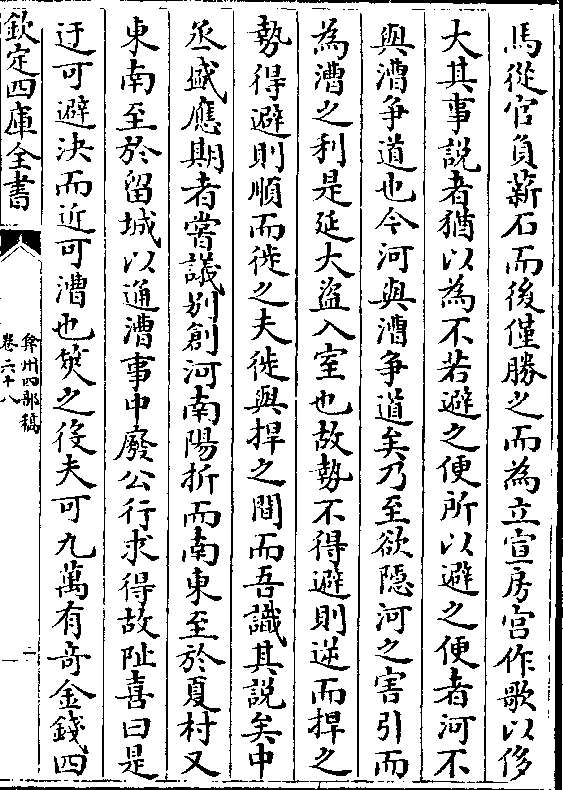 馬從官負薪石而後僅勝之而為立宣房宫作歌以侈
大其事説者猶以為不若避之便所以避之便者河不
與漕爭道也今河與漕爭道矣乃至欲隱河之害引而
為漕之利是延大盜入室也故勢不得避則逆而捍之
勢得避則順而徙之夫徙與捍之間而吾識其説矣中
丞盛應期者嘗議别創河南陽折而南東至於夏村又
東南至於留城以通漕事中廢公行求得故阯喜曰是
迂可避決而近可漕也筴之役夫可九萬有竒金錢四
欽定四庫全書
弇州四部稿
卷六十八
二